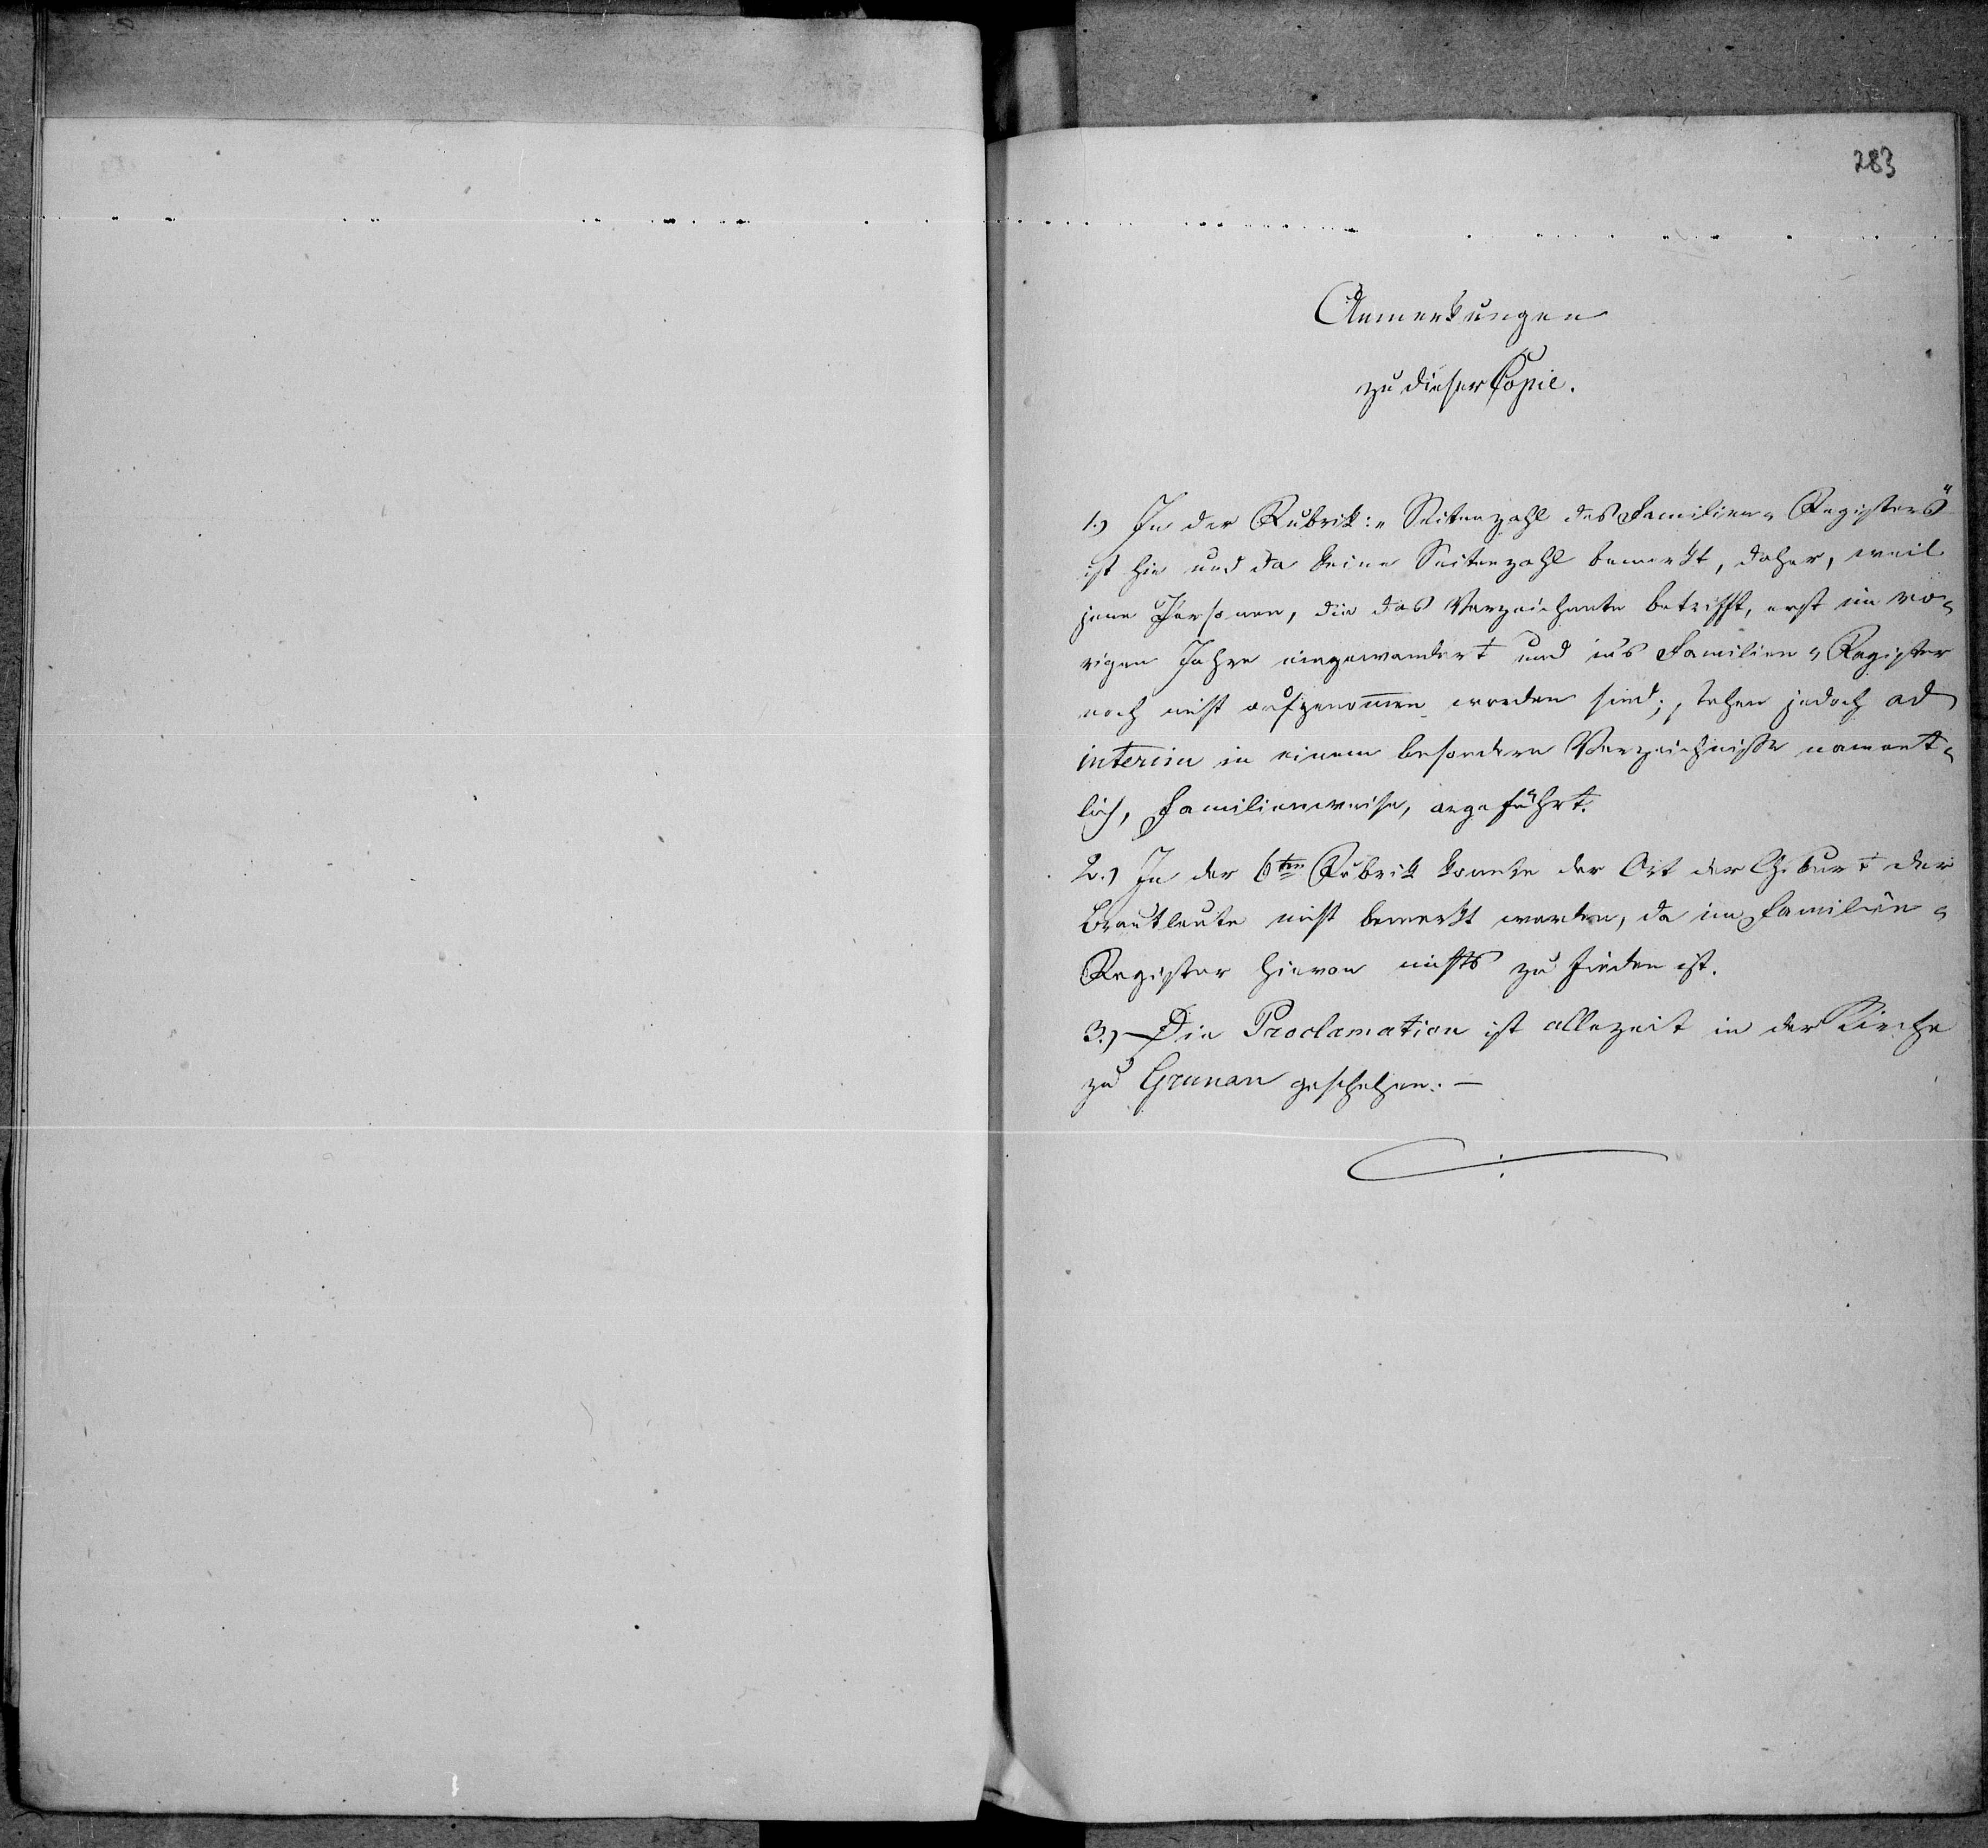 283
Anmerkungen
zu dieser Copie.
1.) In der Rubrik: „Seitenzahl des Familien-Registers“
ist hie und da keine Seitenzahl bemerkt, daher, weil
jene Personen, die das Verzeichnete betrifft, erst im vo-
rigen Jahre eingewandert und in's Familien-Register
noch nicht aufgenom̄en worden sind; stehen jedoch ad
interim in einem besondern Verzeichnisse nament-
lich, Familienweise, angeführt.
2.) In der 6ten Rubrik konnte der Ort der Geburt der
Brautleute nicht bemerkt werden, da im Familien-
Register hievon nichts zu finden ist.
3.) Die Proclamation ist allezeit in der Kirche
zu Grunau geschehen. —